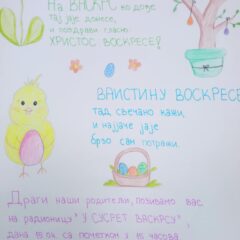 На ВАСКРС ко дође
тај јаје донесе,
и поздрави гласно
ХРИСТОС ВОСКРЕСЕ!
ВАИСТИНУ ВОСКРЕСЕ
тад свечано кажи,
и најјаче јаје
брзо сам потражи.
Драги наши родитељи, позивамо вас
на радионицу "У СУСРЕТ ВАСКРСУ",
дана 15.04. са почетком у 16 часова